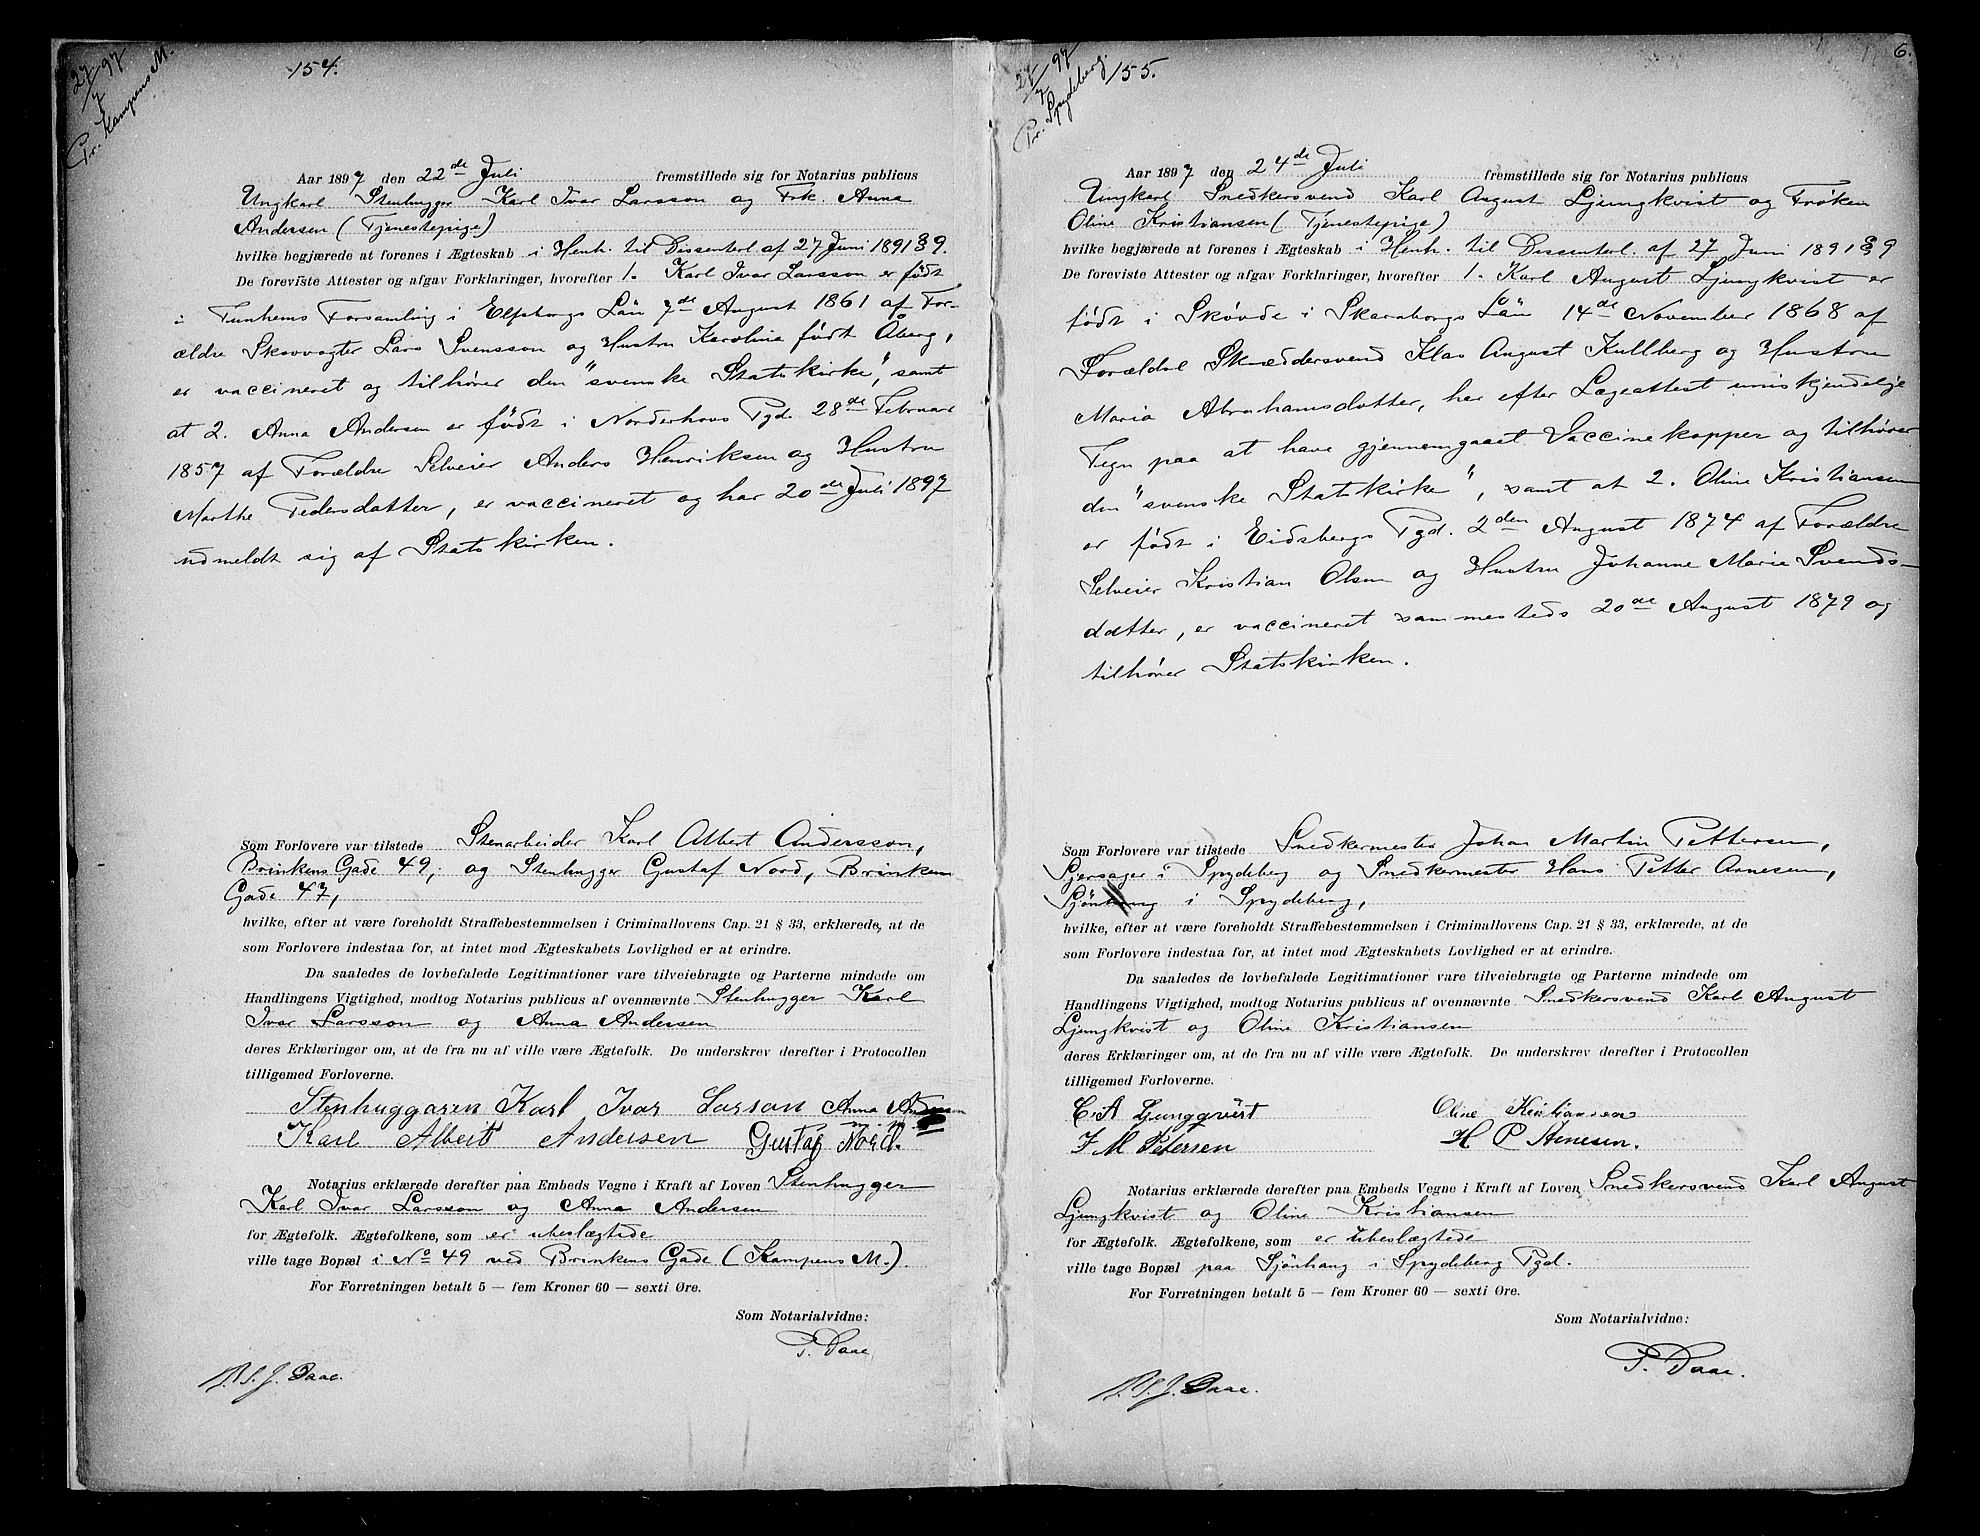 27/7 97
Pr. Kampens M.
154.
Aar 1897 den 22de Juli fremstillede sig for Notarius publicus
Ungkarl Stenhugger Karl Ivar Larsson og Frk. Anna
Andersen (Tjenestepige)
hvilke begjærede at forenes i Ægteskab i Henh. til Dissenterl. af 27 Juni 1891 § 9.
De foreviste Attester og afgav Forklaringer, hvorefter 1. Karl Ivar Larsson er født
i Tunhems Forsamling i Elfsborgs Län 7de August 1861 af For-
ældre Skovvogter Lars Svensson og Hustru Karolina født Åberg,
er vaccineret og tilhører den "svenske Statskirke", samt
at 2. Anna Andersen er født i Norderhovs Pgd. 28de Februar
1857 af Forældre Selveier Anders Henriksen og Hustru
Marthe Pedersdatter, er vaccineret og har 20de Juli 1897
udmeldt sig af Statskirken.
Som Forlovere var tilstede Stenarbeider Karl Albert Andersson,
Brinkens Gade 49, og Stenhugger Gustaf Nord, Brinkens
Gade 47,
hvilke, efter at være foreholdt Straffebestemmelsen i Criminallovens Cap. 21 § 33, erklærede, at de
som Forlovere indestaa for, at intet mod Ægteskabets Lovlighed er at erindre.
Da saaledes de lovbefalede Legitimationer vare tilveiebragte og Parterne mindede om
Handlingens Vigtighed, modtog Notarius publicus af ovennævnte Stenhugger Karl
Ivar Larsson og Anna Andersen
deres Erklæringer om, at de fra nu af ville være Ægtefolk. De underskrev derefter i Protocollen
tilligemed Forloverne.
Stenhuggaren Karl Ivar Larson Anna Andersen
Karl Albert Andersen Gustaf Nord.
Notarius erklærede derefter paa Embeds Vegne i Kraft af Loven Stenhugger
Karl Ivar Larsson og Anna Andersen
for Ægtefolk. Ægtefolkene, som er ubeslægtede
ville tage Bopæl i No 49 ved Brinkens Gade (Kampens M.).
For Forretningen betalt 5 — fem Kroner 60 — sexti Øre.
Som Notarialvidne:
P. Daae
J. Daae.
6.
27/7 97
Pr. Spydeberg.
155.
Aar 1897 den 24de Juli fremstillede sig for Notarius publicus
Ungkarl Snedkersvend Karl August Ljungkvist og Frøken
Oline Kristiansen (Tjenestepige)
hvilke begjærede at forenes i Ægteskab i Henh. til Dissenterl. af 27 Juni 1891 § 9
De foreviste Attester og afgav Forklaringer, hvorefter 1. Karl August Ljungkvist er
født i Skövde i Skaraborgs Län 14de November 1868 af
Forældre Skræddersvend Klas August Kullberg og Hustru
Maria Abrahamsdotter, har efter Lægeattest umiskjendelje
Tegn paa at have gjennemgaaet Vaccinekopper og tilhører
den "svenske Statskirke", samt at 2. Oline Kristiansen
er født i Eidsbergs Pgd. 2den August 1874 af Forældre
Selveier Kristian Olsen og Hustru Johanne Marie Svends-
datter, er vaccineret sammesteds 20de August 1879 og
tilhører Statskirken.
Som Forlovere var tilstede Snedkermester Johan Martin Pettersen,
Gjersager i Spydeberg og Snedkermester Hans Petter Arnesen,
Sjönhaug i Spydeberg,
hvilke, efter at være foreholdt Straffebestemmelsen i Criminallovens Cap. 21 § 33, erklærede, at de
som Forlovere indestaa for, at intet mod Ægteskabets Lovlighed er at erindre.
Da saaledes de lovbefalede Legitimationer vare tilveiebragte og Parterne mindede om
Handlingens Vigtighed, modtog Notarius publicus af ovennævnte Snedkersvend Karl August
Ljungkvist og Oline Kristiansen
deres Erklæringer om, at de fra nu af ville være Ægtefolk. De underskrev derefter i Protocollen
tilligemed Forloverne.
C. A Ljungqvist Oline Kristiansen
J M Petersen H P Arnesen.
Notarius erklærede derefter paa Embeds Vegne i Kraft af Loven Snedkersvend Karl August
Ljungkvist og Oline Kristiansen
for Ægtefolk. Ægtefolkene, som er ubeslægtede
ville tage Bopæl paa Sjönhaug i Spydeberg Pgd.
For Forretningen betalt 5 — fem Kroner 60 — sexti Øre.
Som Notarialvidne:
P. Daae.
J. Daae.